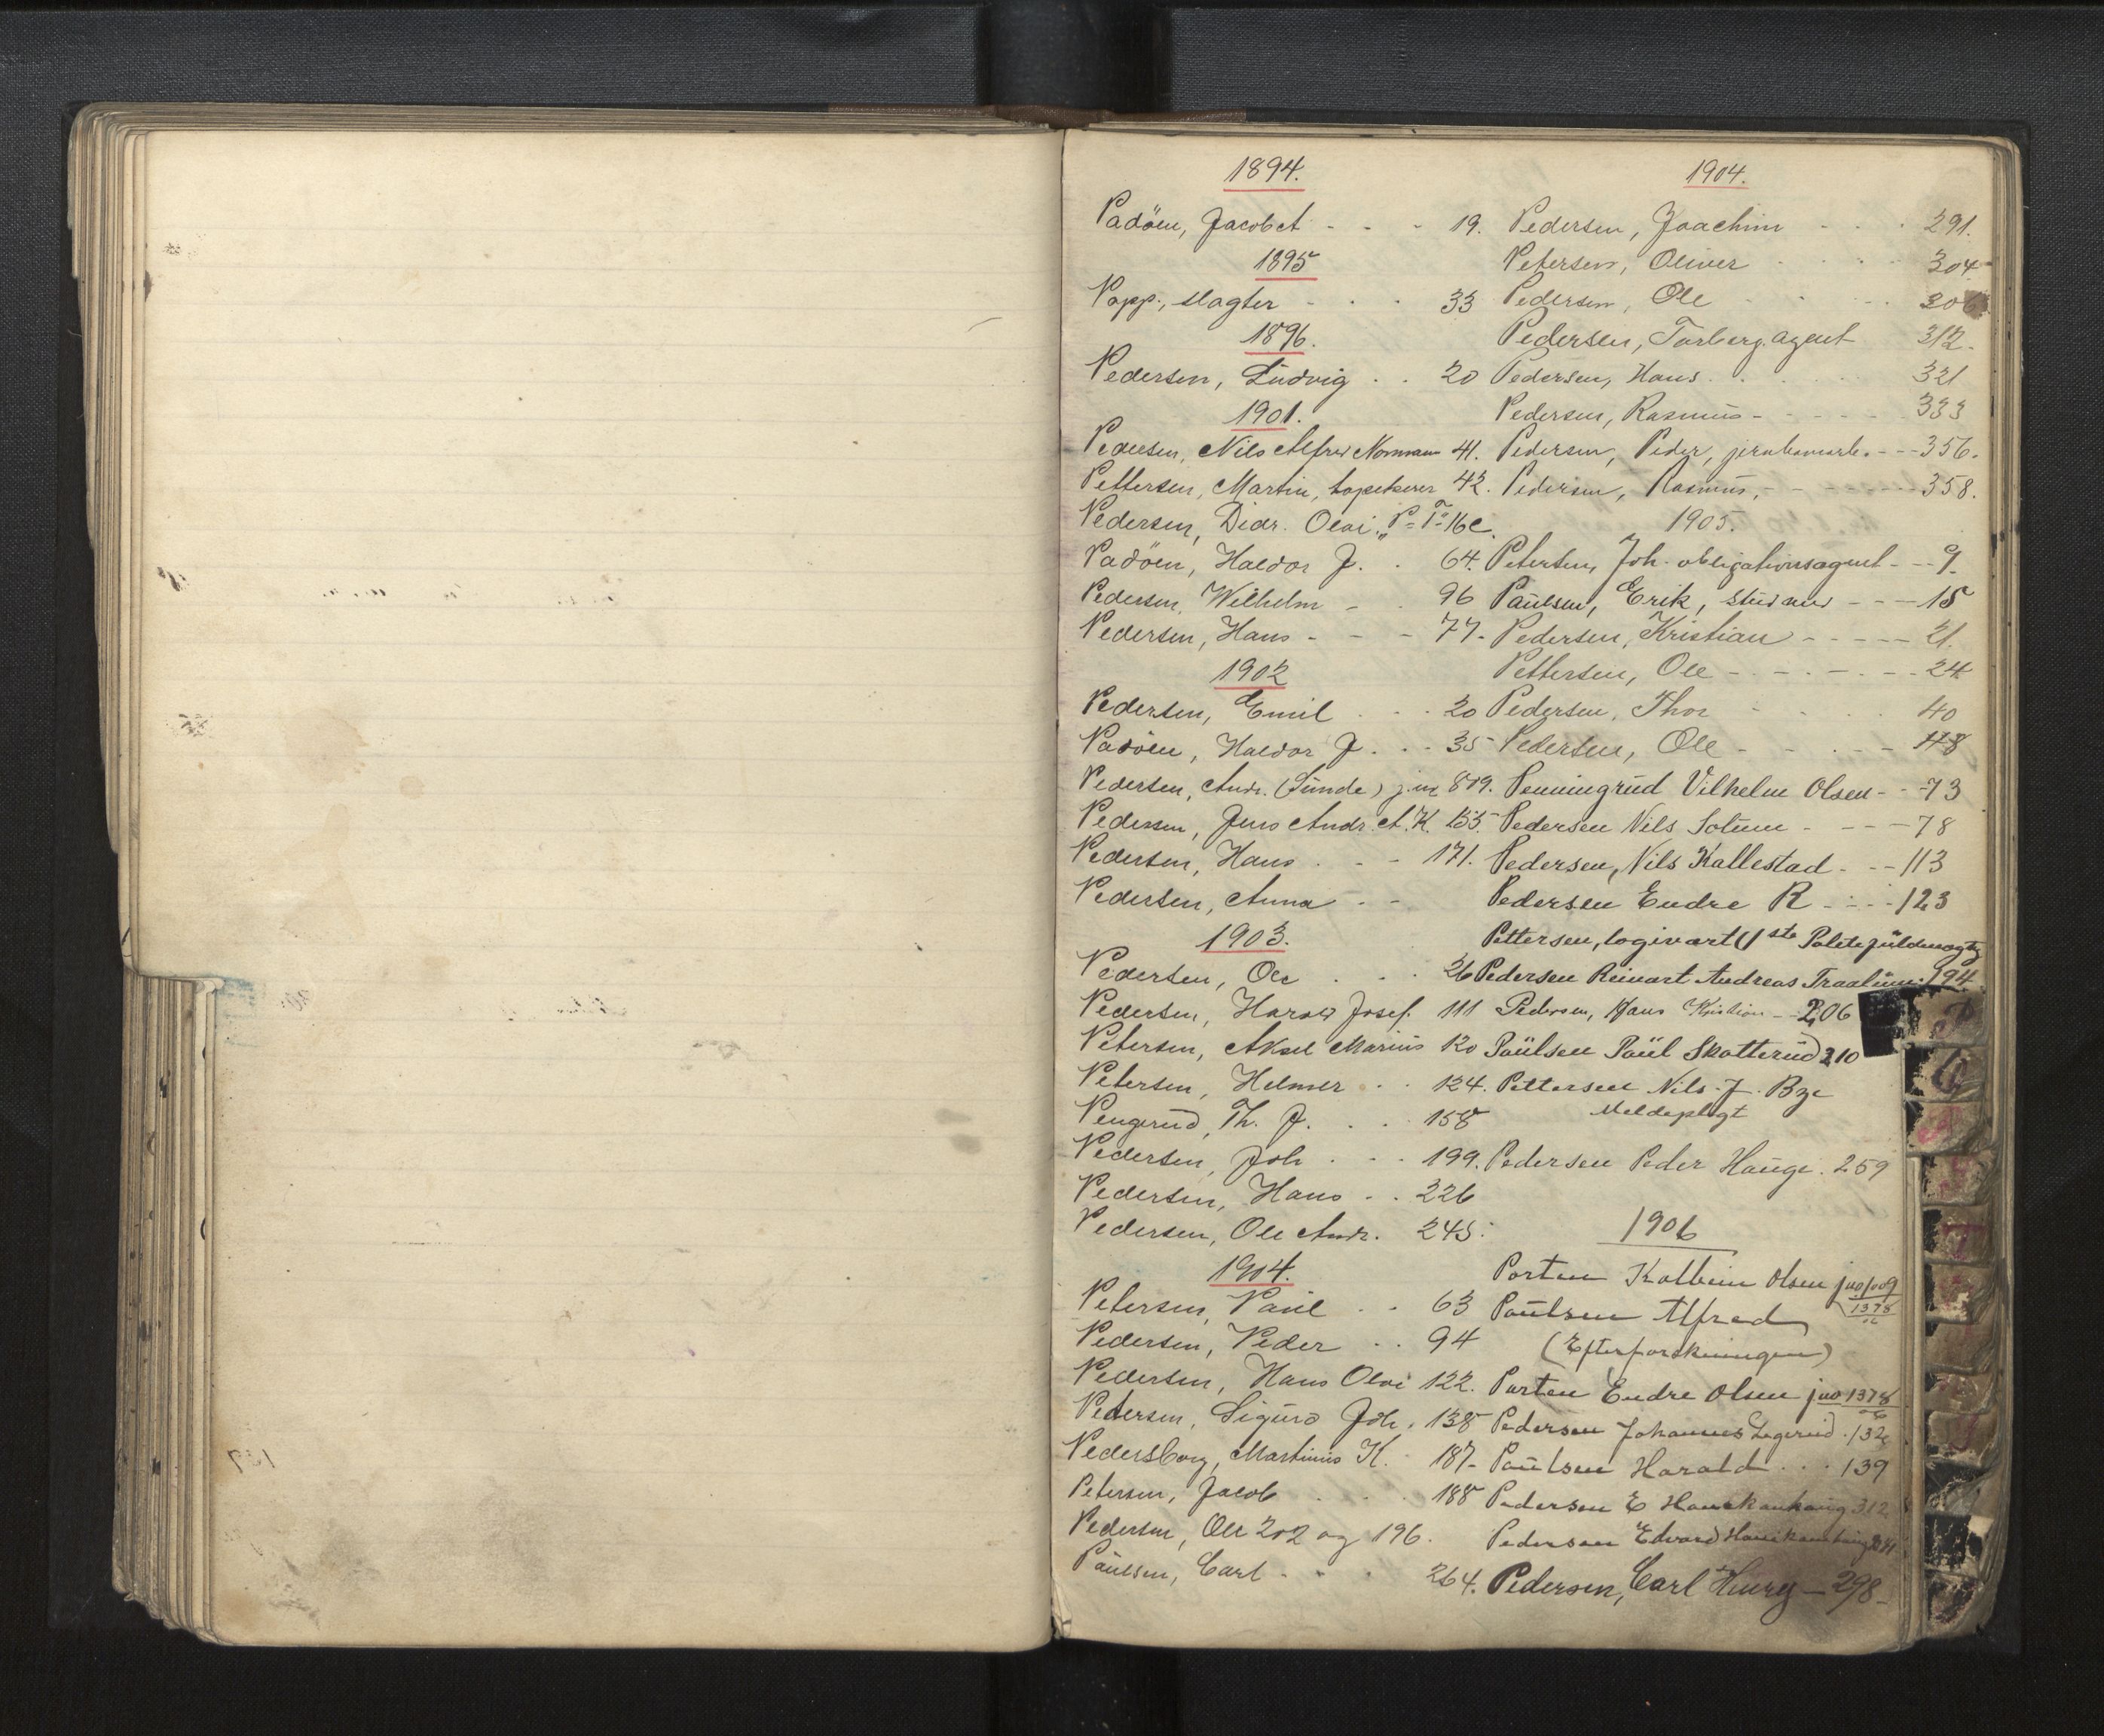 1894.
Padöen, Jacob A - - - 19.
1895
Popp, slagter - - - 33
1896.
Pedersen, Ludvig . . 20
1901.
Pedersen, Nils Alfred Normann 41.
Pettersen, Martin, tapetserer 42.
Pedersen, Didr. Olai
Padöen, Haldor J. . 64.
Pedersen, Wilhelm - . 96
Pedersen, Hans - - - 77-
1902
Pedersen, Emil . . . 20
Padöen, Haldor J. . . 35
Pedersen, Andr. (Sunde)
Pedersen, Jens Andr. A. K. 155.
Pedersen, Hans . - - 171.
Pedersen, Anna - -
1903.
Pedersen, Ole . . . 26
Pedersen, Harald Josef. 111
Petersen, Aksel Marius 120
Petersen, Helmer . . 124.
Pengerud, Th. J. . . . 158
Pedersen, Joh . . . 199.
Pedersen, Hans . . 226
Pedersen, Ole Andr. 245.
1904.
Petersen, Paul . . 63
Pedersen, Peder . . 94
Pedersen, Hans Olai 122.
Pedersen, Sigurd Joh. 138
Pedersborg, Martinius K. 187-
Petersen, Jacob . . . 188
Pedersen, Ole 202 og 196.
Paulsen, Carl - . . 264.
1904.
Pedersen, Joachim - . . 291.
Petersen, Oliver . . . 304
Pedersen, Ole - . - . 306
Pedersen, Torberg. agent 312.
Pedersen, Hans . . . 321
Pedersen, Rasmus - - - - 333
Pedersen, Peder, jernbanearb. - - 356.
Pedersen, Rasmus, - - - - 358.
1905.
Petersen, Joh. obligationsagent - - 9.
Paulsen, Erik, - - - 15
Pedersen, Kristian - - - - - 21.
Pettersen, Ole - . - . - . - - 24
Pedersen, Thor . . . 40
Pedersen, Ole - - . - - 48
Penningrud Vilhelm Olsen - - 73
Pedersen Nils Solum - - - - 78
Pedersen, Nils Kallestad - - - 113
Pedersen Endre R - . - . - 123
Pettersen, logivært (1ste
Pedersen Reinart Andreas 194
Pedersen, Hans Kristian - - 206
Paulsen Paul Skotterud 210
Pettersen Nils. J.
Meldepligt
Pedersen Peder Hauge. 259
1906
Porten Kolbein Olsen
Paulsen Alfred
(Efterforskningen)
Porten Endre Olsen 1378
Pedersen Johannes
Paulsen Harald . . . 139
Pedersen E 312
Pedersen Edvard
Pedersen, Carl Henry - 298-